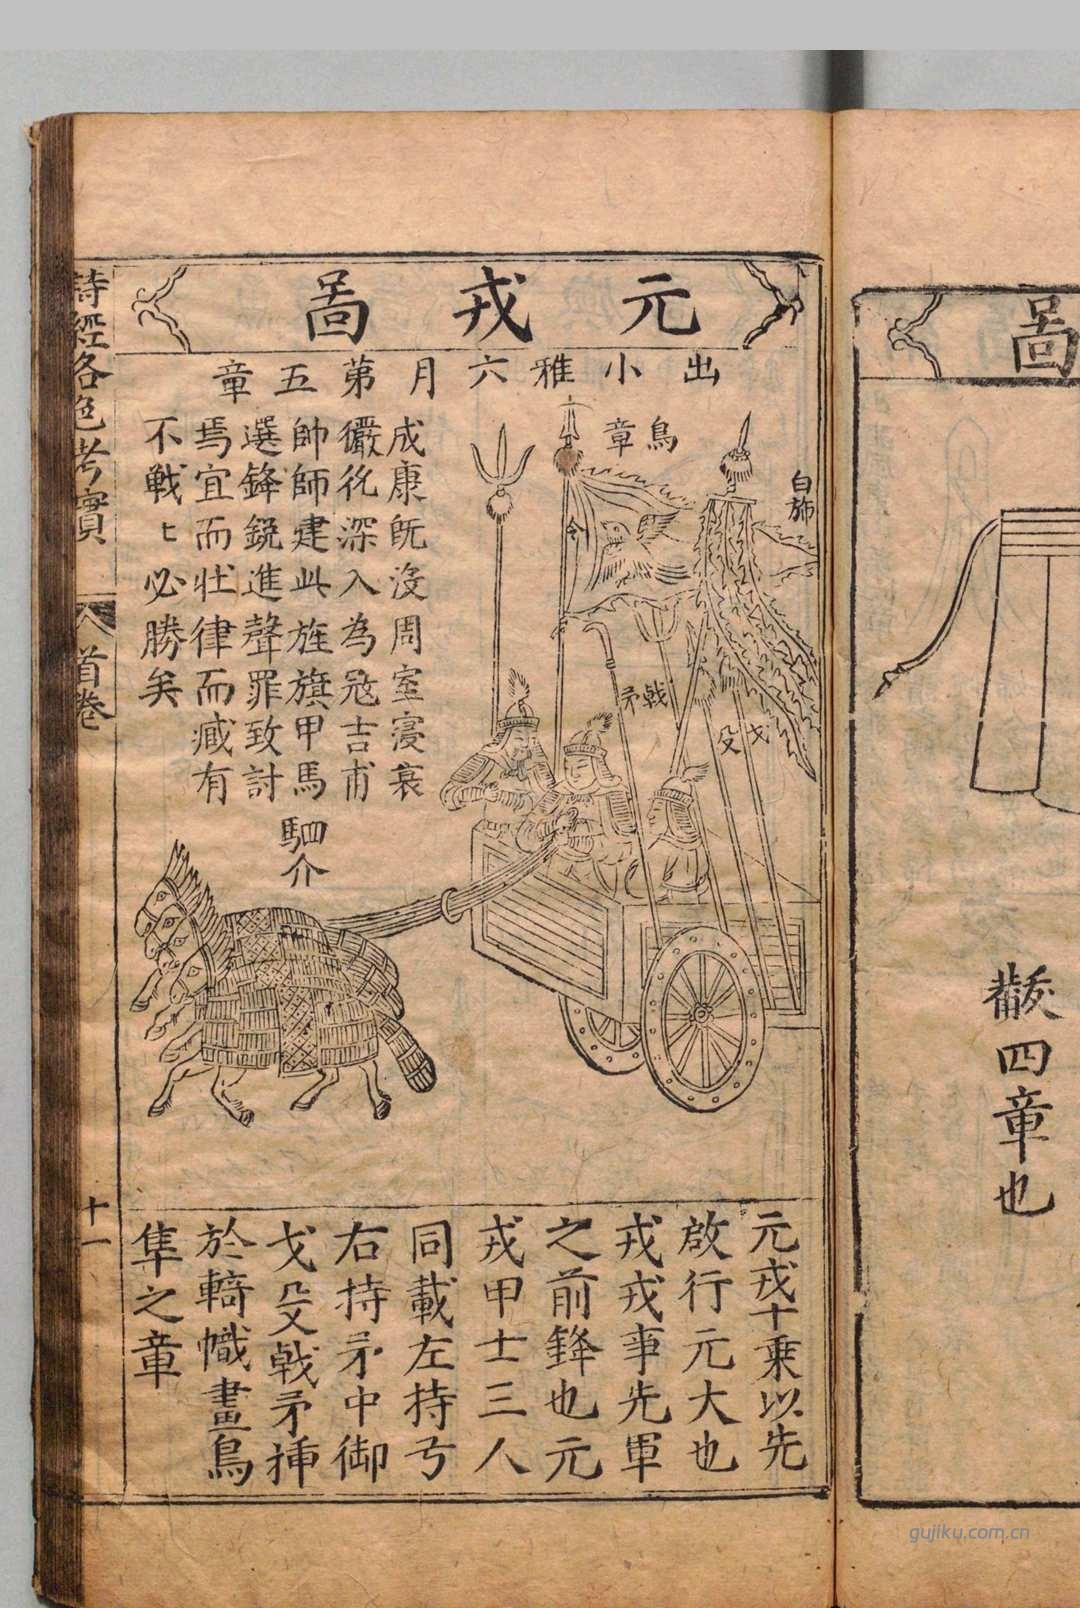 元戎圖
出小雅六月第五章
成康既沒周室寖衰
玁狁深入為寇吉甫
帥師建此旌旗甲馬
選鋒銳進聲罪致討
焉宜而壯律而臧有
不戰〻必勝矣
鳥章
白斾
令
戟
矛
戈
殳
駟介
元戎十乗以先
啟行元大也
戎戎事先軍
之前鋒也元
戎甲士三人
同載左持弓
右持矛中御
戈殳戟矛揷
於輢幟畫鳥
隼之章
詩經各色考實
首卷
十一
圖
四章也
gujiku.com.cn